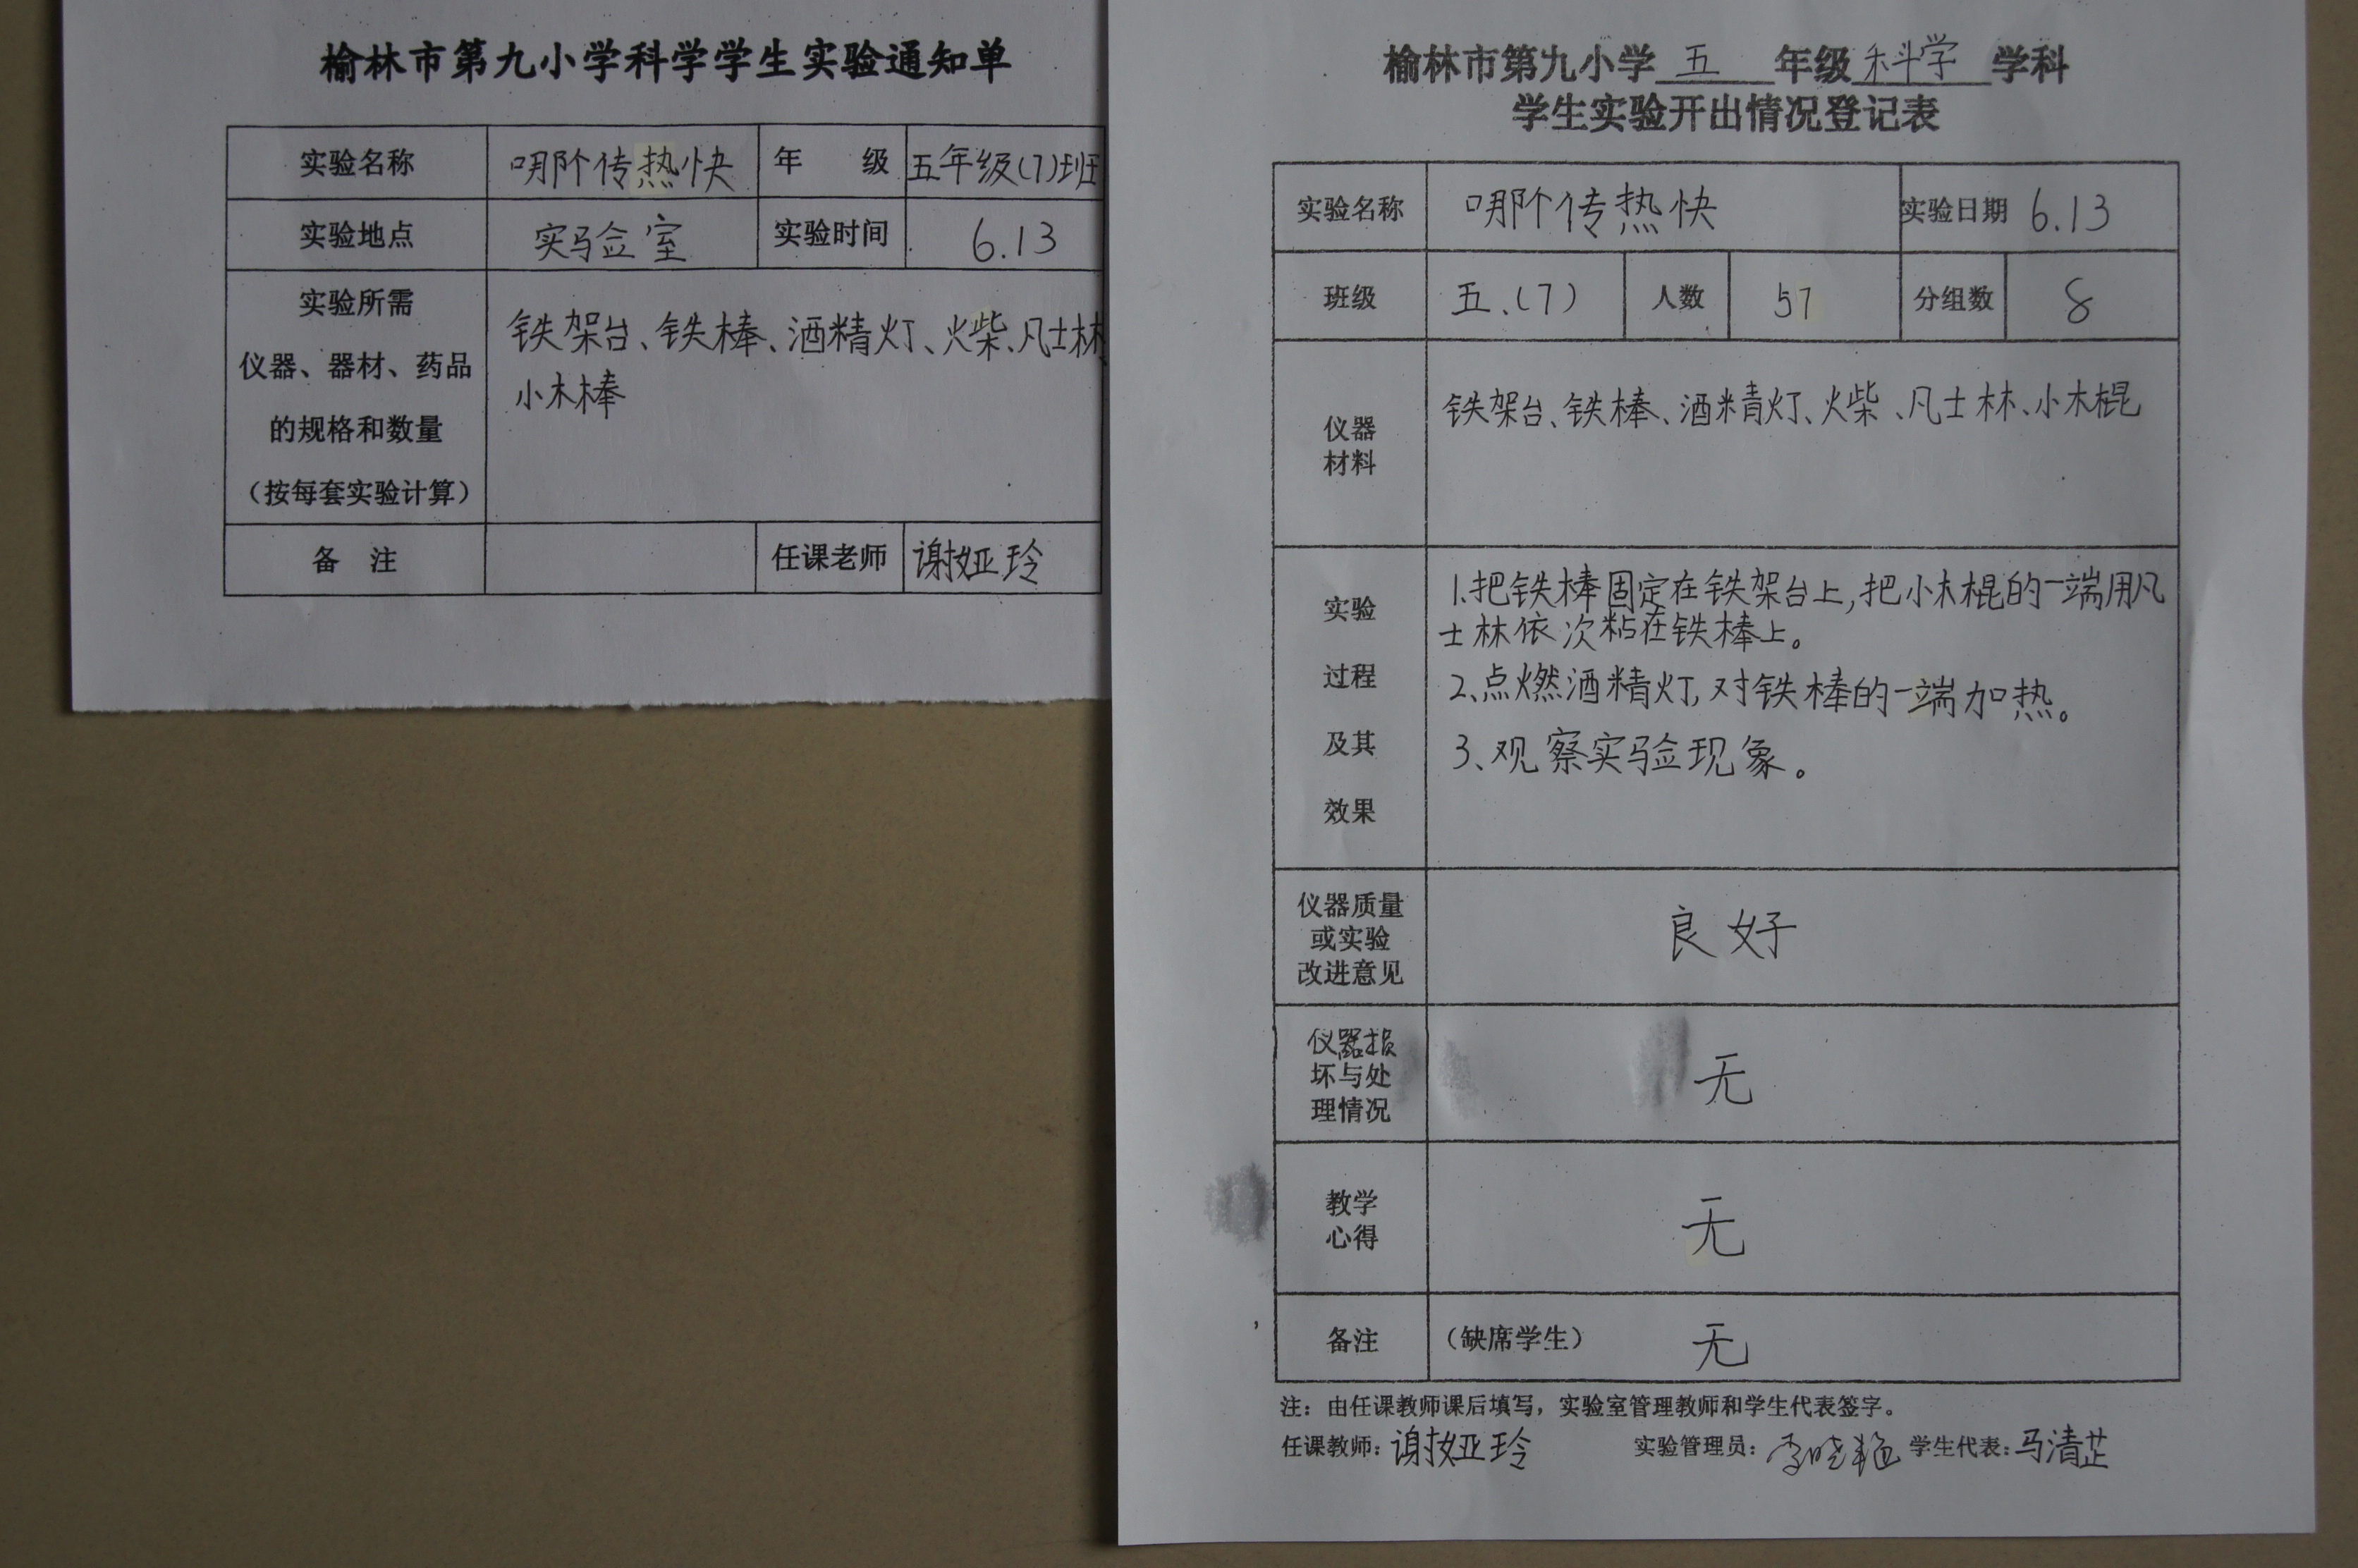 榆林市第九小学科学学生实验通知单
实验名称 哪个传热快 年 级 五年级(7)班
实验地点 实验室 实验时间 6.13
实验所需
仪器、器材、药品
的规格和数量
（按每套实验计算）
铁架台、铁棒、酒精灯、火柴、凡士林
小木棒
备 注 任课老师 谢娅玲
榆林市第九小学 五 年级 科学 学科
学生实验开出情况登记表
实验名称 哪个传热快 实验日期 6.13
班级 五.(7) 人数 57 分组数 8
仪器
材料
铁架台、铁棒、酒精灯、火柴、凡士林、小木棍
实验
过程
及其
效果
1.把铁棒固定在铁架台上,把小木棍的一端用凡
士林依次粘在铁棒上。
2、点燃酒精灯,对铁棒的一端加热。
3、观察实验现象。
仪器质量
或实验
改进意见
良好
仪器损
坏与处
理情况
无
教学
心得
无
备注 （缺席学生） 无
注：由任课教师课后填写，实验室管理教师和学生代表签字。
任课教师：谢娅玲 实验管理员：李晓艳 学生代表：马清芷